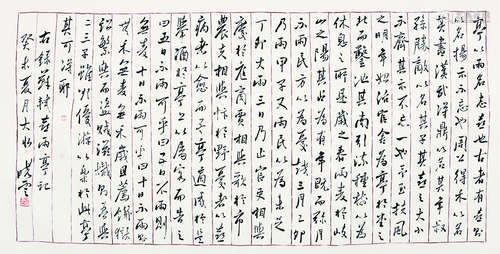 亭以雨名志喜也古者有喜則
以名物示不忘也周公得禾以名
其書漢武得鼎以名其年叔
孫勝敵以名其子其喜之大小
不齊其示不忘一也予至扶風
之明年始治官舍為亭於堂之
北而鑿池其南引流種樹以為
休息之所是歲之春雨麥於岐
山之陽其占為有年既而彌月
不雨民方以為憂越三月乙卯
乃雨甲子又雨民以為未足
丁卯大雨三日乃止官吏相與
慶於庭商賈相與歌於市
農夫相與忭於野憂者以喜
病者以愈而吾亭適成於是
舉酒於亭上以屬客而告之
曰五日不雨可乎曰五日不雨則
無麥十日不雨可乎曰十日不雨則
無禾無麥無禾歲且薦饑獄
訟繁興而盜賊滋熾則吾與
二三子雖欲優游以樂於此亭
其可得耶
右錄蘇軾喜雨亭記
癸未夏月